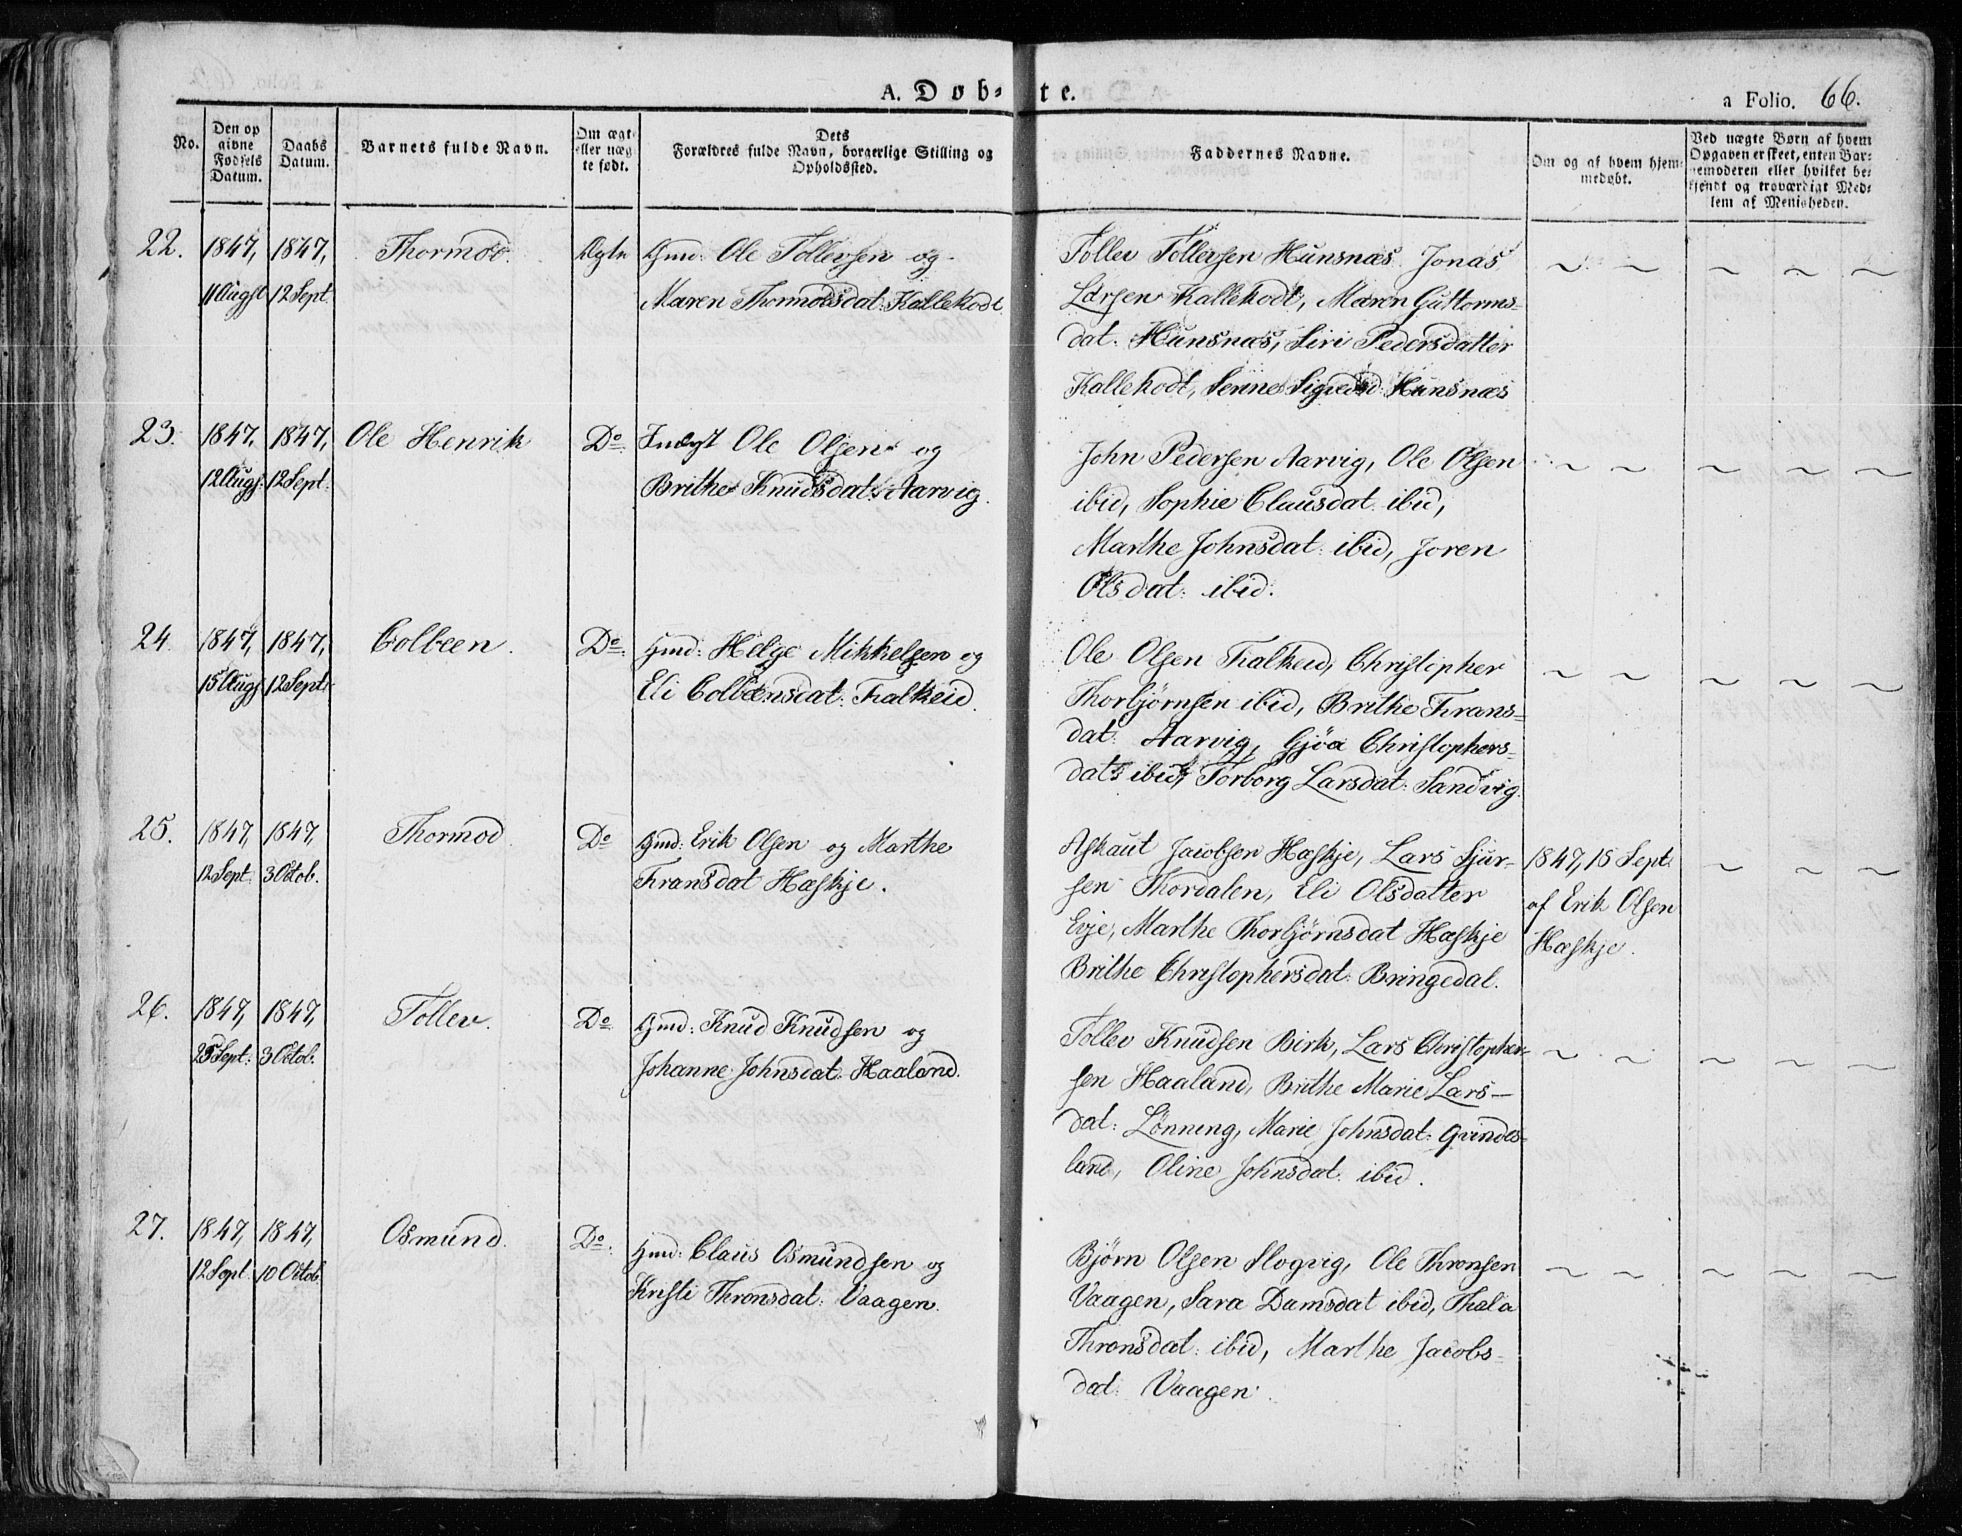 A. Døb-te.
a Folio. 66.
No.
Den op
givne
Fødsels
Datum.
Daabs
Datum.
Barnets fulde Navn.
Om ægte
eller næg
te født.
Dets
Forældres fulde Navn, borgerlige Stilling og
Opholdssted.
Faddernes Navne.
Om og af hvem hjem-
medøbt.
Ved uægte Børn af hvem
Opgaven er skeet, enten Bar-
nemoderen eller hvilket be-
kjendt og troværdigt Med-
lem af Menigheden.
22.
1847,
11 Augst
1847,
12 Sept
Thormod.
Ægte
Gmd: Ole Tollevsen og
Maren Thormodsdat: Kallekodt
Tollev Tollevsen Hunsnæs Jonas
Larsen Kallekodt, Maren Guttorms-
dat: Hunsnæs, Siri Pedersdatter
Kallekodt, Hunsnæs
23.
1847,
12 Augs:
1847,
12 Sept:
Ole Henrik
Do
Indst Ole Olsen og
Brithe Knudsdat: Aarvig.
John Pedersen Aarvig, Ole Olsen
ibid, Sophie Clausdat: ibid,
Marthe Johnsdat: ibid, Joren
Olsdat: ibid.
24.
1847,
15 Augs
1847,
12 Sept:
Colbeen.
Do:
Gmd: Helge Mikkelsen og
Eli Colbensdat: Falkeid.
Ole Olsen Falkeid, Christopher
Thorbjørnsen ibid, Brithe Frans-
dat: Aarvig, Gjøa Christophers-
dat: ibid, Torborg Larsdat: Sandvig.
25.
1847,
12 Sept
1847,
3 Octob.
Thormod
Do
Gmd: Erik Olsen og Marthe
Fransdat Hæskje.
Askaut Jacobsen Hæskje, Lars Sjur-
sen Thordalen, Eli Olsdatter
Eije, Marthe Thorbjørnsdat Hæskje
Brithe Christophersdat: Bringedal.
1847, 15 Sept:
af Erik Olsen
Hæskje.
26.
1847,
25 Sept:
1847,
3 Octob.
Tollev.
Do
Gmd: Knud Knudsen og
Johanne Johnsdat: Haaland.
Tollev Knudsen Birk, Lars Christopher-
sen Haaland, Brithe Marie Lars-
dat: Lønning, Marie Johnsdat: Qvindes-
land, Oline Johnsdat: ibid.
27.
1847,
12 Sept
1847,
10 Octob
Osmund.
Do:
Gmd: Claus Osmundsen og
Kristi Thronsdat: Vaagen.
Bjørn Olsen Slogvig, Ole Thronsen
Vaagen, Sara Damsdat ibid, Thala
Thronsdat: ibid, Marthe Jacobs-
dat: Vaagen.